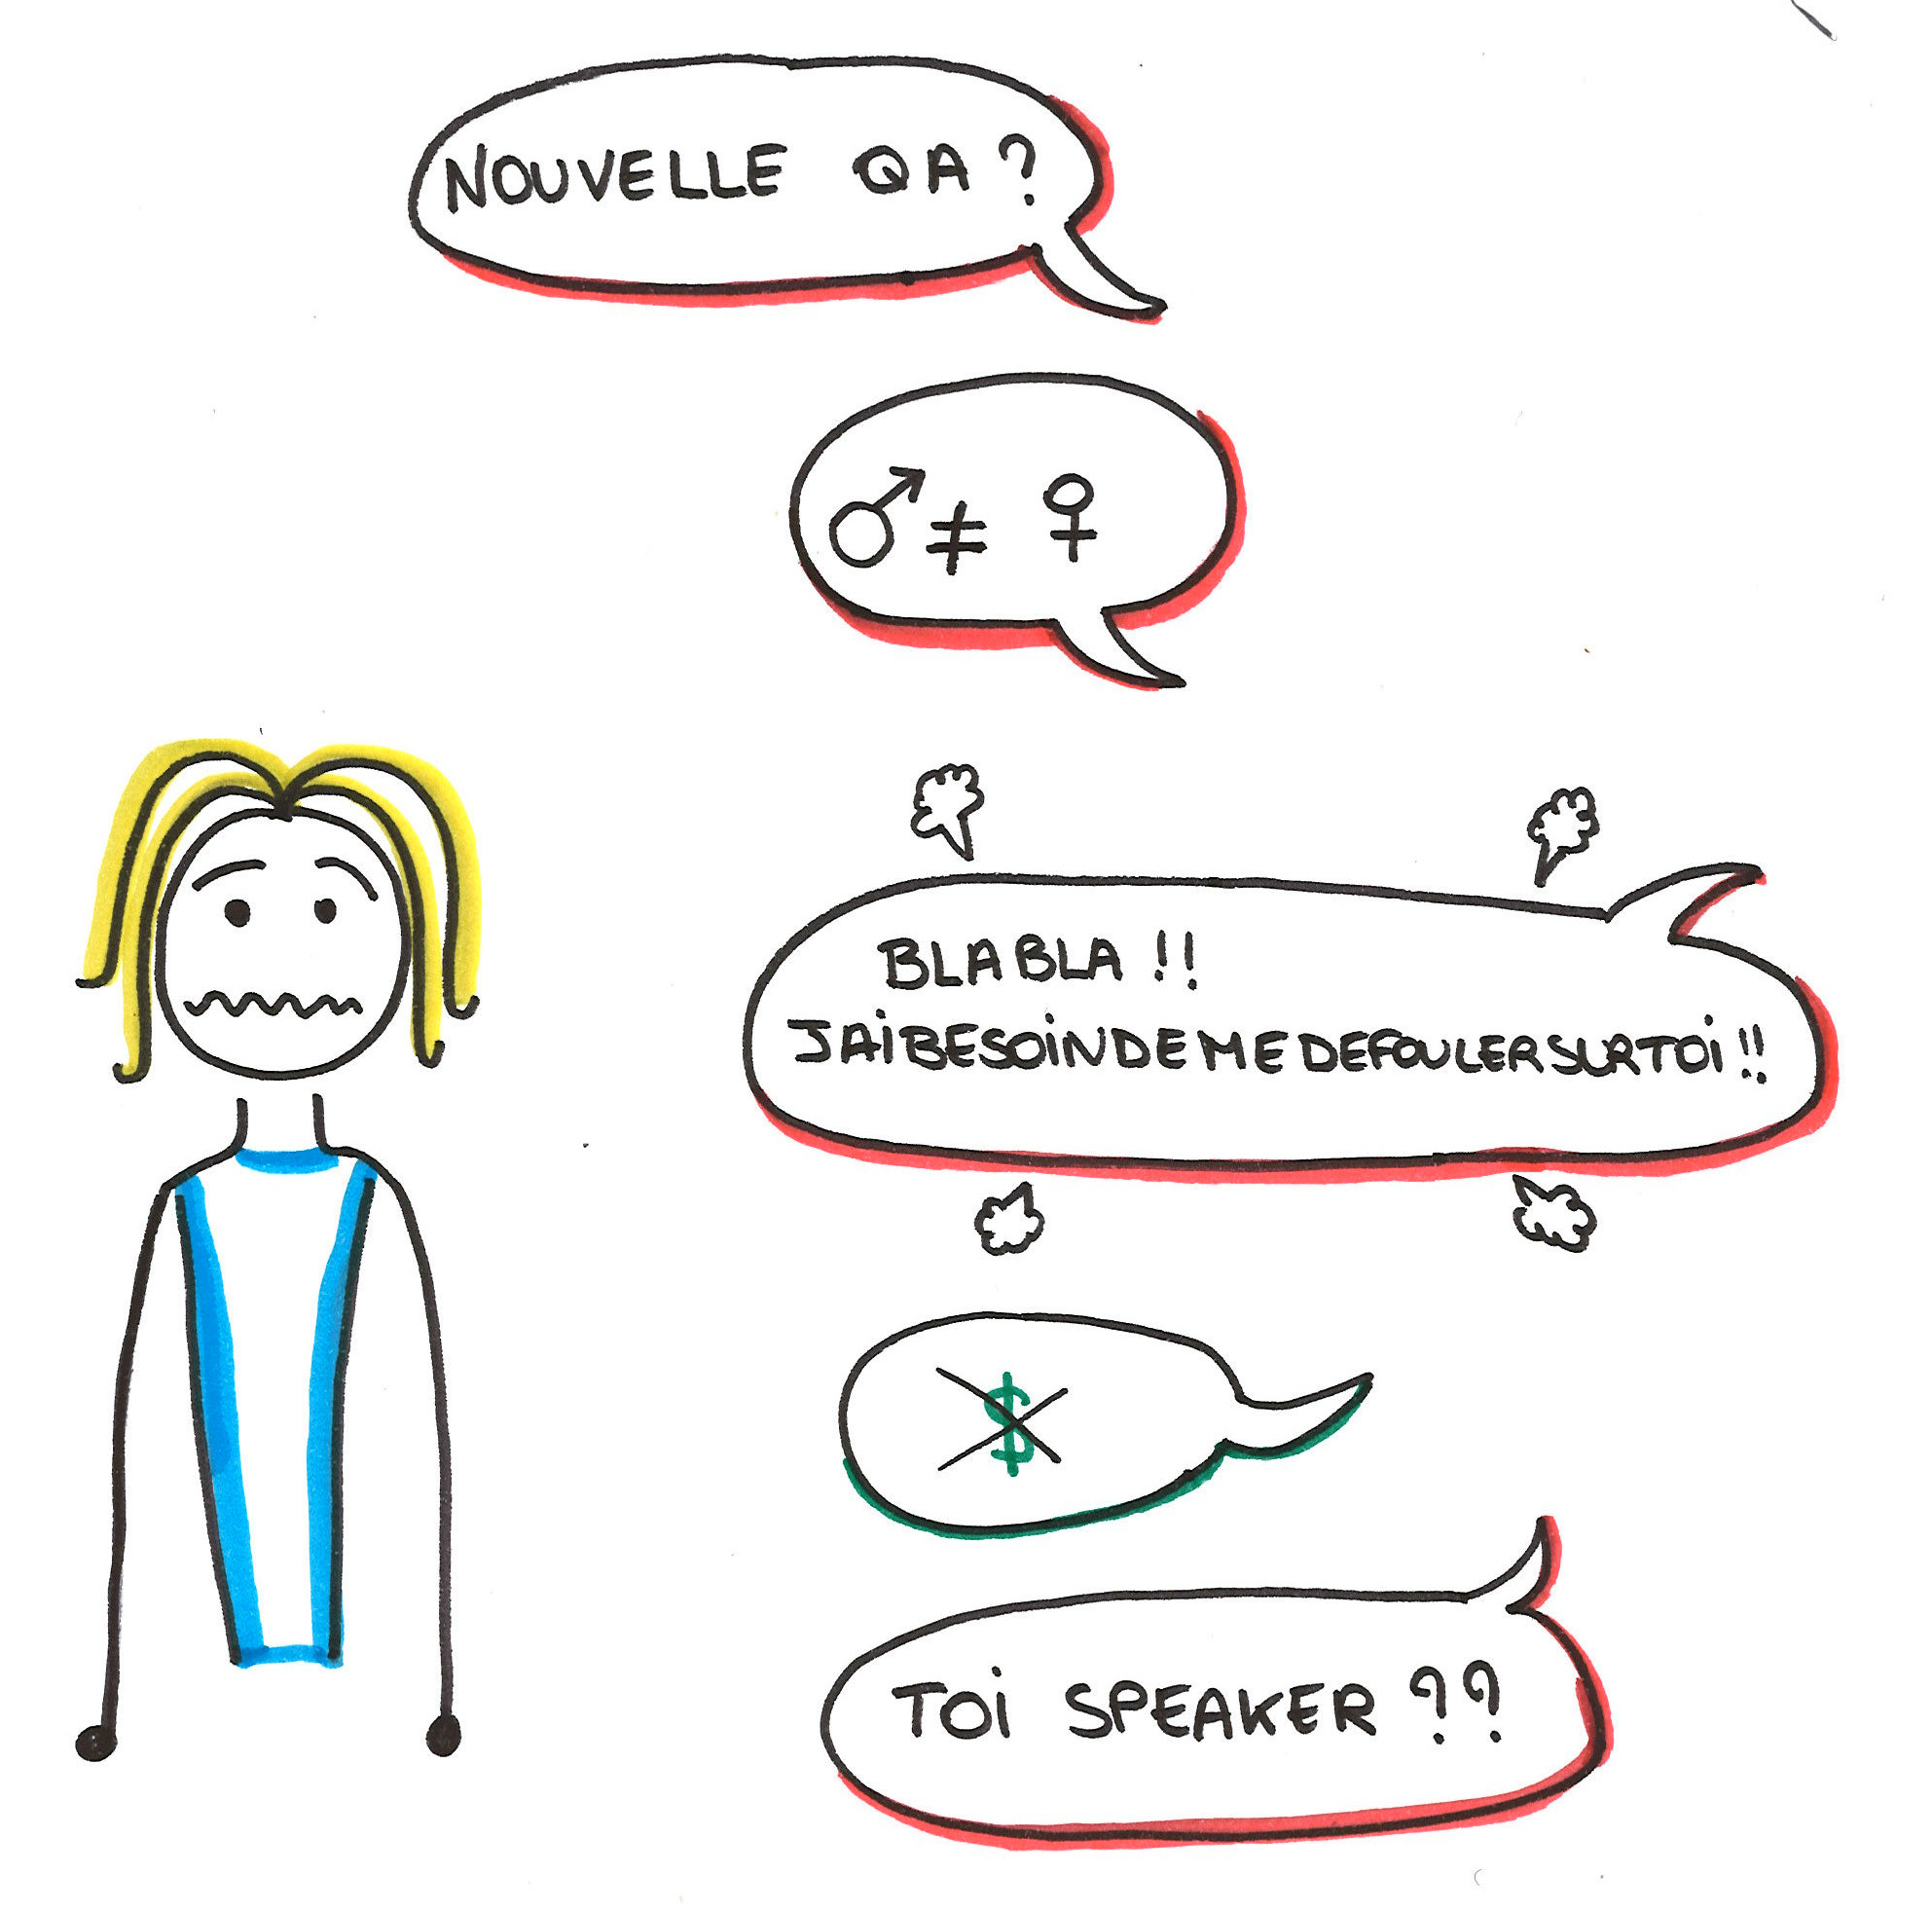 NOUVELLE QA ?
♂ ≠ ♀
BLABLA !!
JAiBESOiNDEMEDEFOULERSURTOi !!
$
TOi SPEAKER ??